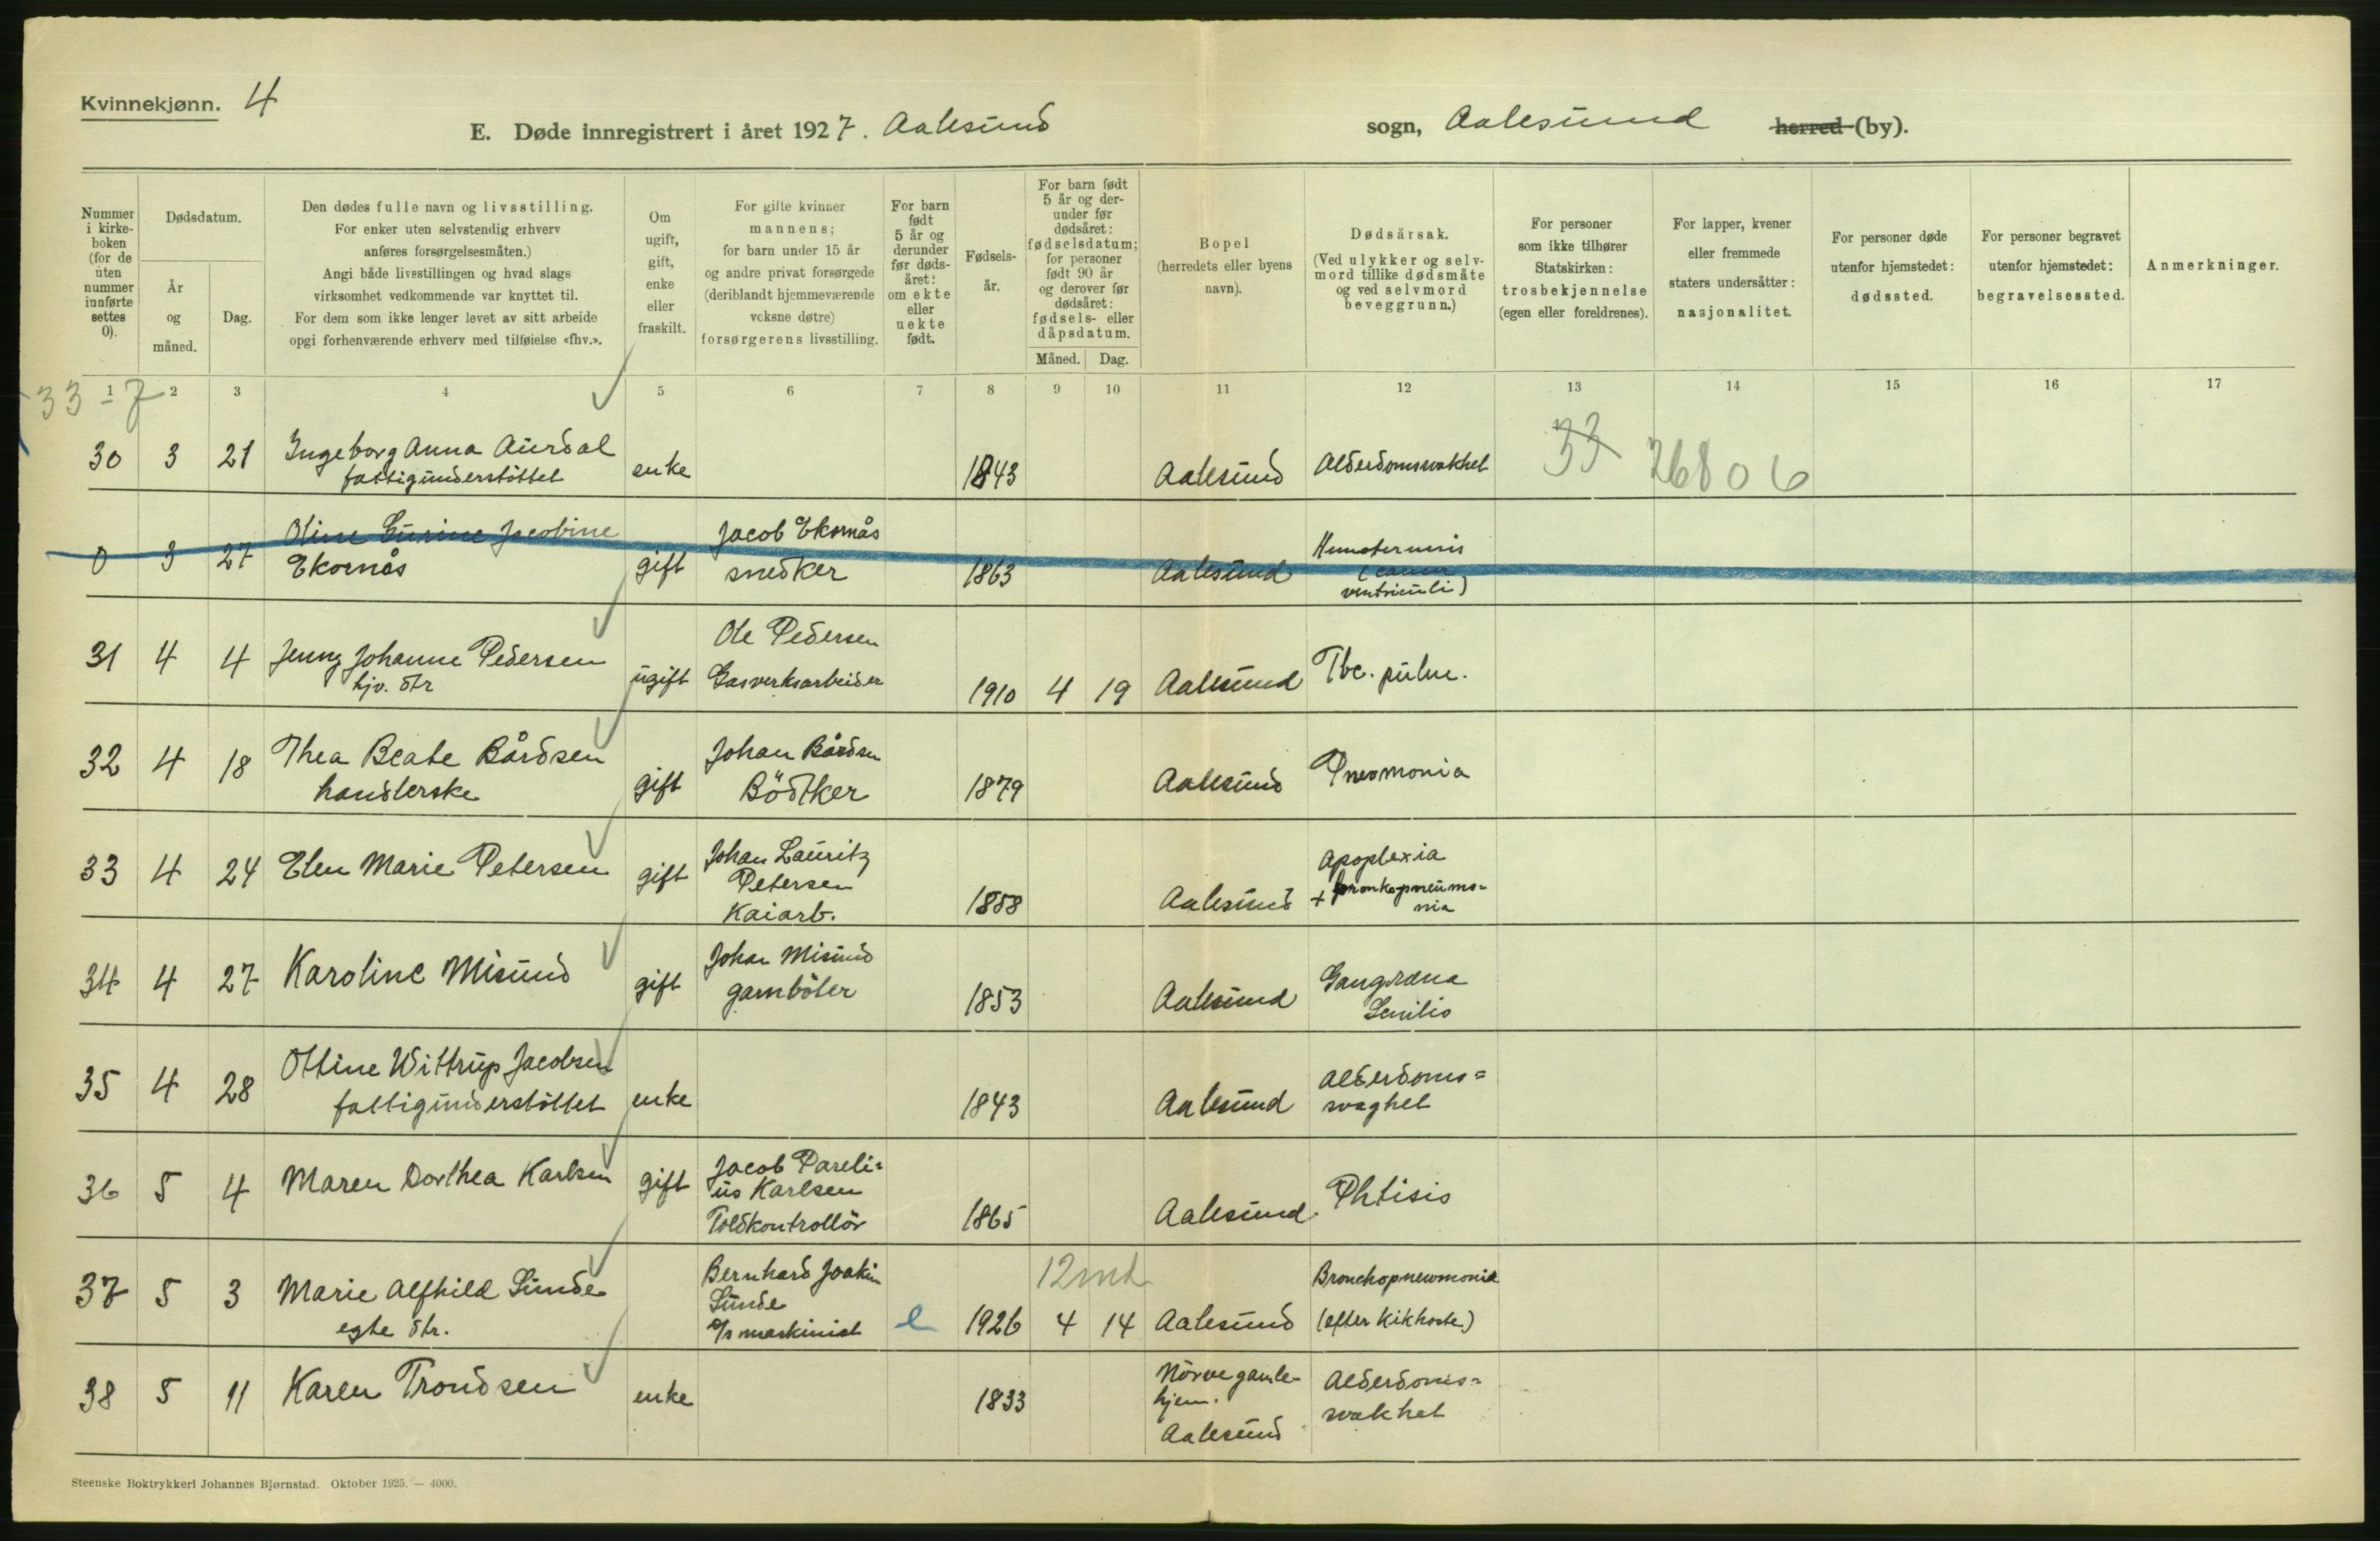 Kvinnekjønn. 4
E. Døde innregistrert i året 1927. Aalesund sogn, Aalesund herred (by).
Nummer i kirke-boken (for de uten nummer innførte settes 0).
Dødsdatum.
År og måned.
Dag.
Den dødes fulle navn og livsstilling.
For enker uten selvstendig erhverv
anføres forsørgelsesmåten.)
Angi både livsstillingen og hvad slags
virksomhet vedkommende var knyttet til.
For dem som ikke lenger levet av sitt arbeide
opgi forhenværende erhverv med tilføielse «fhv.».
Om ugift, gift, enke eller fraskilt.
For gifte kvinner
mannens;
for barn under 15 år
og andre privat forsørgede
(deriblandt hjemmeværende
voksne døtre)
forsørgerens livsstilling.
For barn født 5 år og derunder før døds-året: om ekte eller uekte født.
Fødsels-år.
For barn født 5 år og der-under før dødsåret: fødselsdatum; for personer født 90 år og derover før dødsåret: fødsels- eller dåpsdatum.
Måned. Dag.
Bopel
(herredets eller byens
navn).
Dødsårsak.
(Ved ulykker og selv-
mord tillike dødsmåte
og ved selvmord
beveggrunn.)
For personer
som ikke tilhører
Statskirken:
trosbekjennelse
(egen eller foreldrenes).
For lapper, kvener
eller fremmede
staters undersåtter:
nasjonalitet.
For personer døde
utenfor hjemstedet:
dødssted.
For personer begravet
utenfor hjemstedet:
begravelsessted.
Anmerkninger.
33-7
1 2 3 4 5 6 7 8 9 10 11 12 13 14 15 16 17
30 3 21 Ingeborg Anna Aurdal enke 1843 Aalesund Alderdomsvakhet 33 26806
fattigunderstöttet
0 3 27 Oline Eurine Jacobine gift Jacob Ekornås 1863 Aalesund Hematemesis
Ekornås snedker (cancer
ventriculi)
31 4 4 Jenny Johanne Pedersen ugift Ole Pedersen 1910 4 19 Aalesund Tbc. pulm.
hjv. dtr Gasverksarbeider
32 4 18 Thea Beate Bårdsen gift Johan Bårdsen 1879 Aalesund Pneomonia
handlerske Bödtker
33 4 24 Elen Marie Petersen gift Johan Lauritz 1858 Aalesund Apoplexia
Petersen + bronkopneumo=
Kaiarb. nia
34 4 27 Karoline Misund gift Johan Misund 1853 Aalesund Gangræna
garnböter Senilis
35 4 28 Ottine Wittrup Jacobsen enke 1843 Aalesund Alderdoms=
fattigunderstöttet svaghet
36 5 4 Maren Dorthea Karlsen gift Jacob Pareli= 1865 Aalesund Phtisis
us Karlsen
Toldkontrollör
37 5 3 Marie Alfhild Sunde Bernhard Joakim e 1926 4 14 Aalesund Bronchopneumonia
egte dtr. Sunde 12 md (efter Kikhoste)
d/s maskinist
38 5 11 Karen Trondsen enke 1833 Nörve gamle- Alderdoms=
hjem. svakhet
Aalesund
Steenske Boktrykkeri Johannes Bjørnstad. Oktober 1925. — 4000.